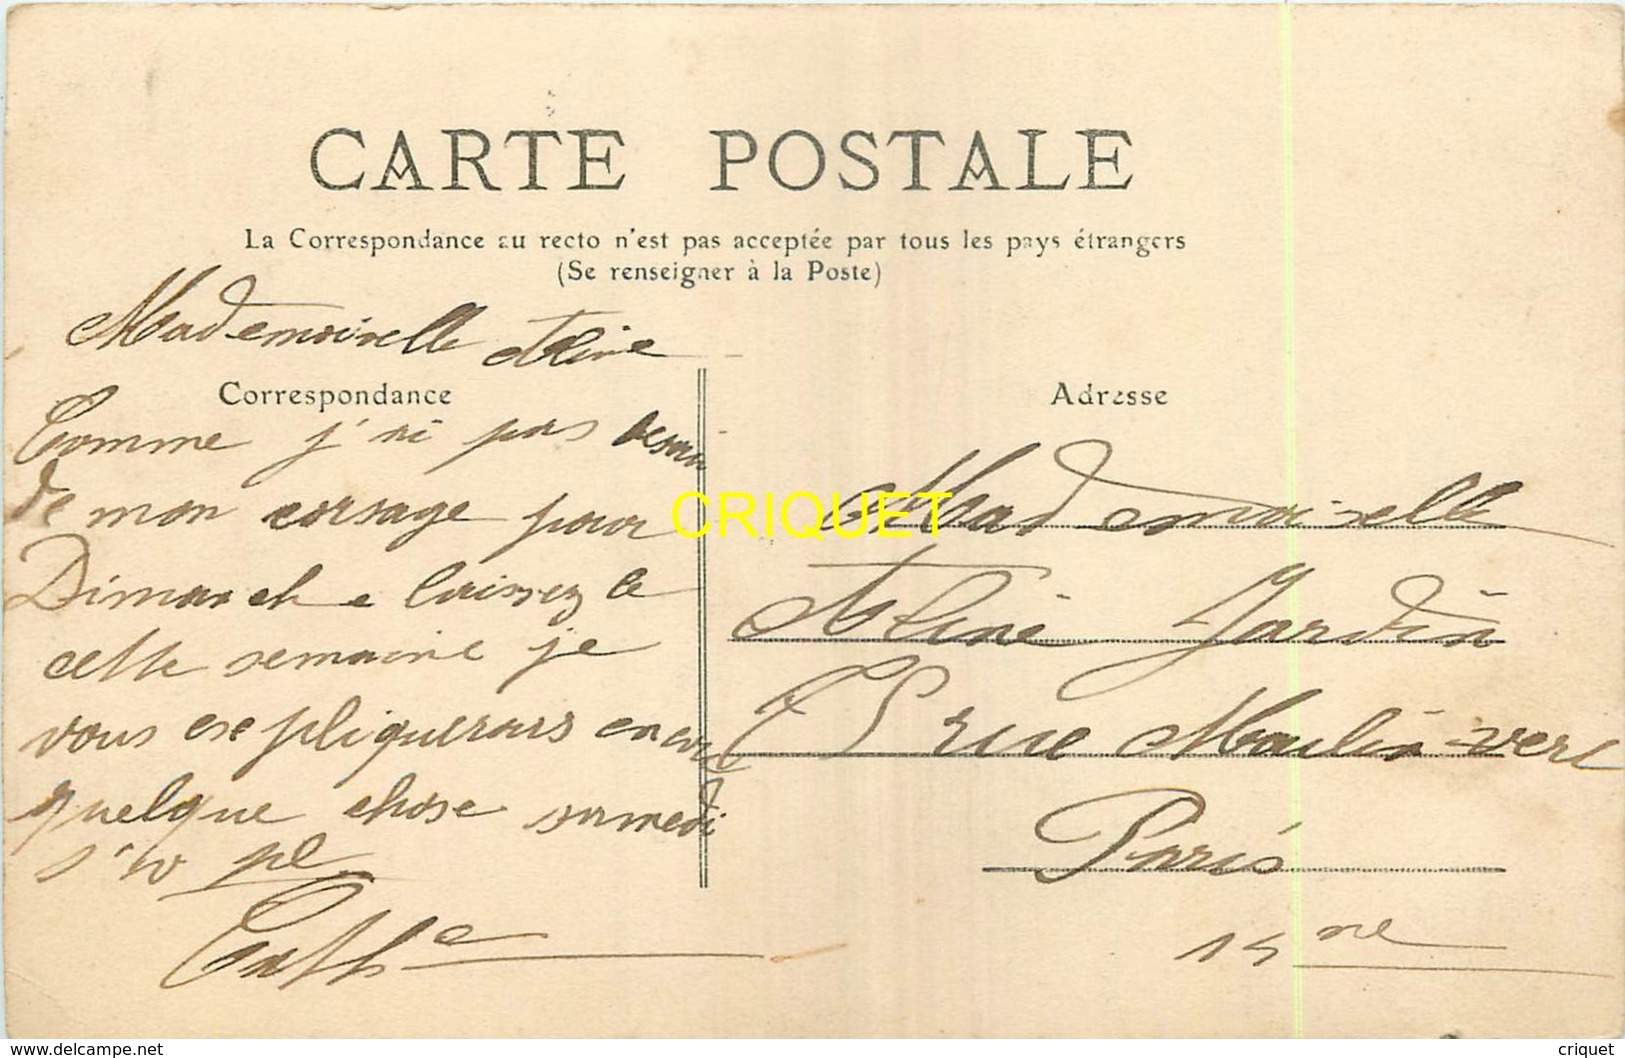 CARTE POSTALE
La Correspondance au recto n'est pas acceptée par tous les pays étrangers
(Se renseigner à la Poste)
Mademoiselle Aline
Correspondance
Comme j'ai pas besoin
de mon corsage pour
Dimanche laissez le
cette semaine je
vous expliquerais encore
quelque chose samedi
s'v pl
Cath e
Adresse
Mademoiselle
Aline Jardin
rue Moulin vert
Paris
15 me
CRIQUET
www.delcampe.net
criquet